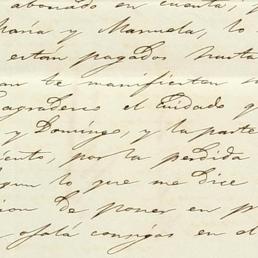 abonado en cuenta, y
María y Manuela, lo
estan pagados hasta
se manifiesten
agradecer el Cuidado q
y Domingo, y la parte
iento, por la perdida
segun lo que me dice
ion de poner en p
ojalá consigas en el